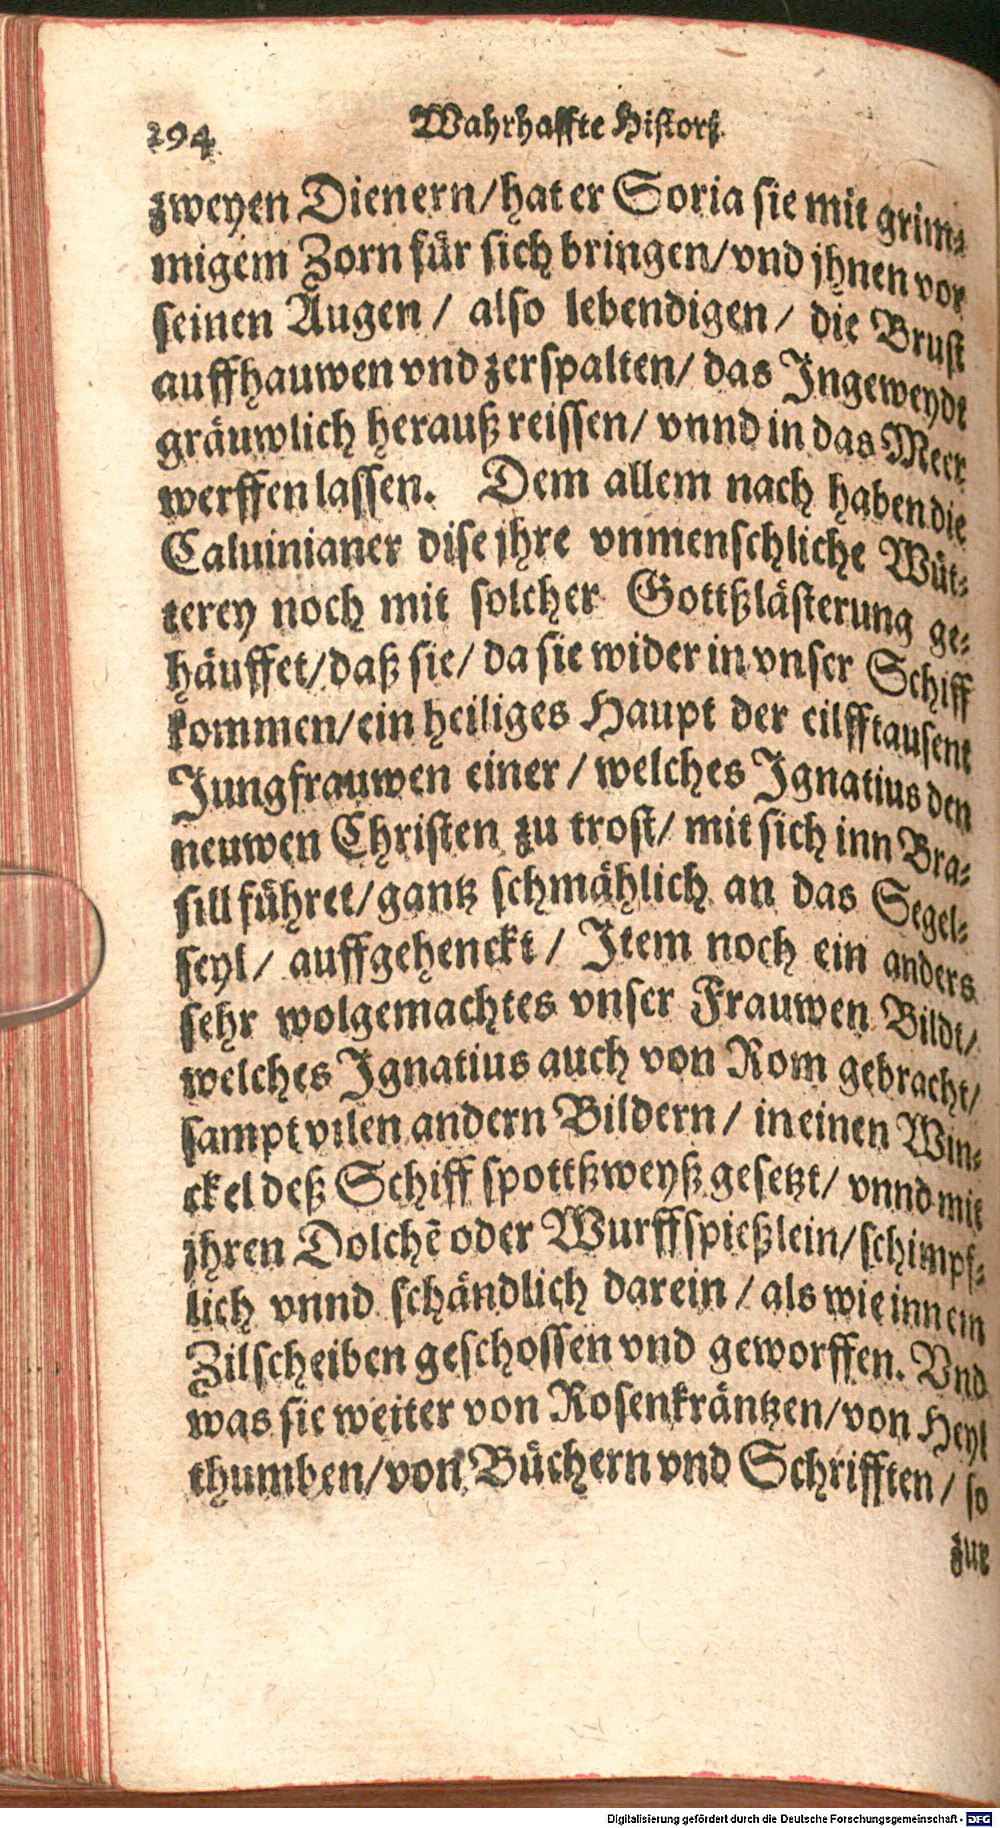 294 Wahrhaffte Histori
zweyen Dienern/hat er Soria sie mit grim-
migem Zorn für sich bringen/vnd jhnen vor
seinen Augen / also lebendigen / die Brust
auffhauwen vnd zerspalten/ das Jngeweydt
gräuwlich herauß reissen/ vnnd in das Meer
werffen lassen. Dem allem nach haben die
Caluinianer dise jhre vnmenschliche Wüt-
terey noch mit solcher Gottßlästerung ge-
häuffet/daß sie/ da sie wider in vnser Schiff
kommen/ein heiliges Haupt der eilfftausent
Jungfrauwen einer / welches Jgnatius den
neuwen Christen zu trost/ mit sich inn Bra-
sill führet/gantz schmählich an das Segel-
seyl/ auffgehenckt / Jtem noch ein anders
sehr wolgemachtes vnser Frauwen Bildt/
welches Jgnatius auch von Rom gebracht/
sampt vilen andern Bildern / in einen Win-
ckel deß Schiff spottßweyß gesetzt/ vnnd mit
jhren Dolchẽ oder Wurffspießlein/schimpf-
lich vnnd schändlich darein / als wie inn ein
Zilscheiben geschossen vnd geworffen. Vnd
was sie weiter von Rosenkräntzen/von Heyl
thumben/von Büchern vnd Schrifften / so
zur
Digitalisierung gefördert durch die Deutsche Forschungsgemeinschaft - DFG